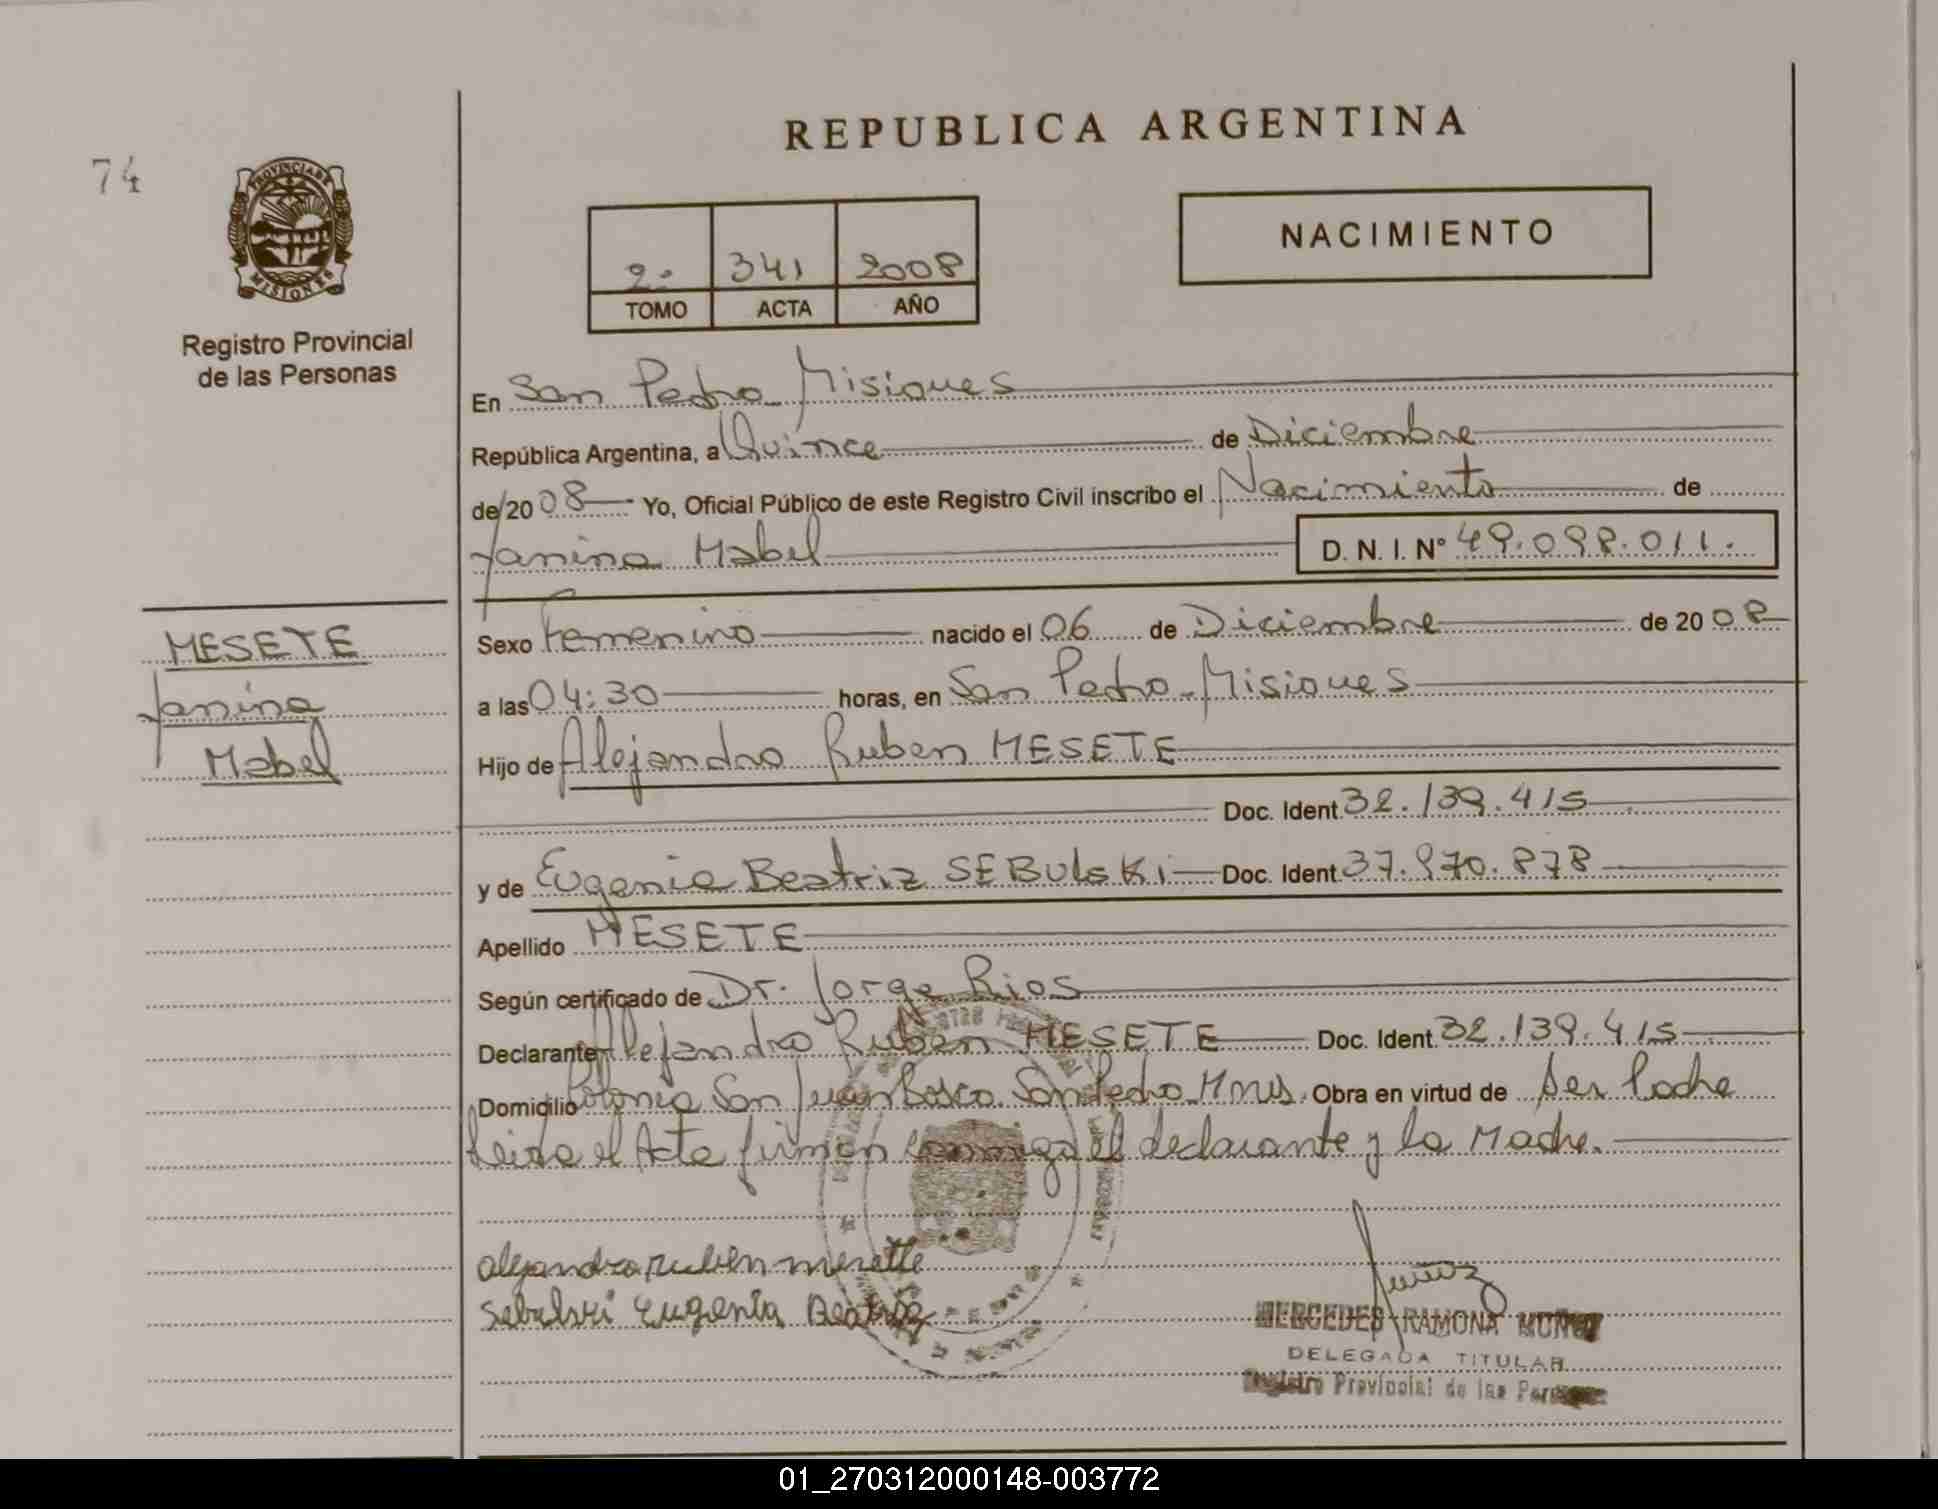 REPUBLICA ARGENTINA
74
PROVINCIA DE
MISIONES
Registro Provincial
de las Personas
2º 341 2008
TOMO ACTA AÑO
NACIMIENTO
En San Pedro Misiones
República Argentina, a Quince de Diciembre
de 2008 Yo, Oficial Público de este Registro Civil inscribo el Nacimiento de
Yanina Mabel D. N. I. Nº 49.098.011.
MESETE
Yanina
Mabel
Sexo Femenino nacido el 06 de Diciembre de 2008
a las 04:30 horas, en San Pedro Misiones
Hijo de Alejandro Ruben MESETE
Doc. Ident. 32.139.415
y de Eugenia Beatriz SEBULSKI Doc. Ident. 37.970.878
Apellido MESETE
Según certificado de Dr. Jorge Rios
Declarante Alejandro Ruben MESETE Doc. Ident. 32.139.415
Domicilio Colonia San Juan Bosco San Pedro Mnes. Obra en virtud de Ser Padre
Leida el Acta firman conmigo el declarante y la Madre.
alejandro ruben mesette
Sebulski Eugenia Beatriz
MERCEDES RAMONA MUÑOZ
DELEGADA TITULAR
Registro Provincial de las Personas
01_270312000148-003772